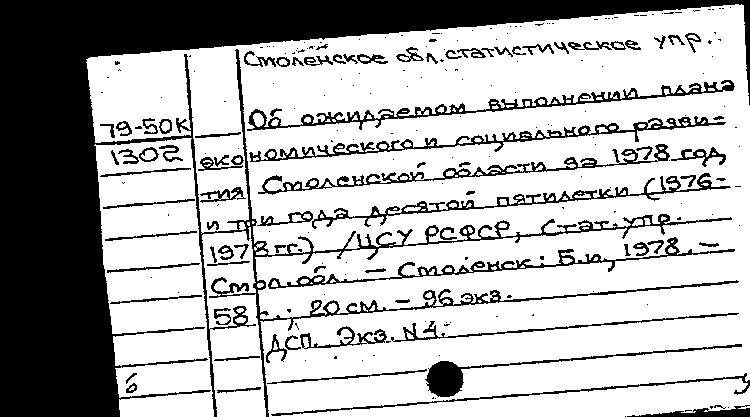 Смоленское обл. статистическое упр.
79-50К
1302
Об ожидаемом выполнении плана
экономического и социального разви=
тия Смоленской области за 1978 год
и три года десятой пятилетки (1976-
1978 гг.) /ЦСУ РСФСР, Стат. упр.
Смол. обл. - Смоленск: Б.и., 1978. -
58 с.; 20 см. - 96 экз.
ДСП. Экз. N4.
б